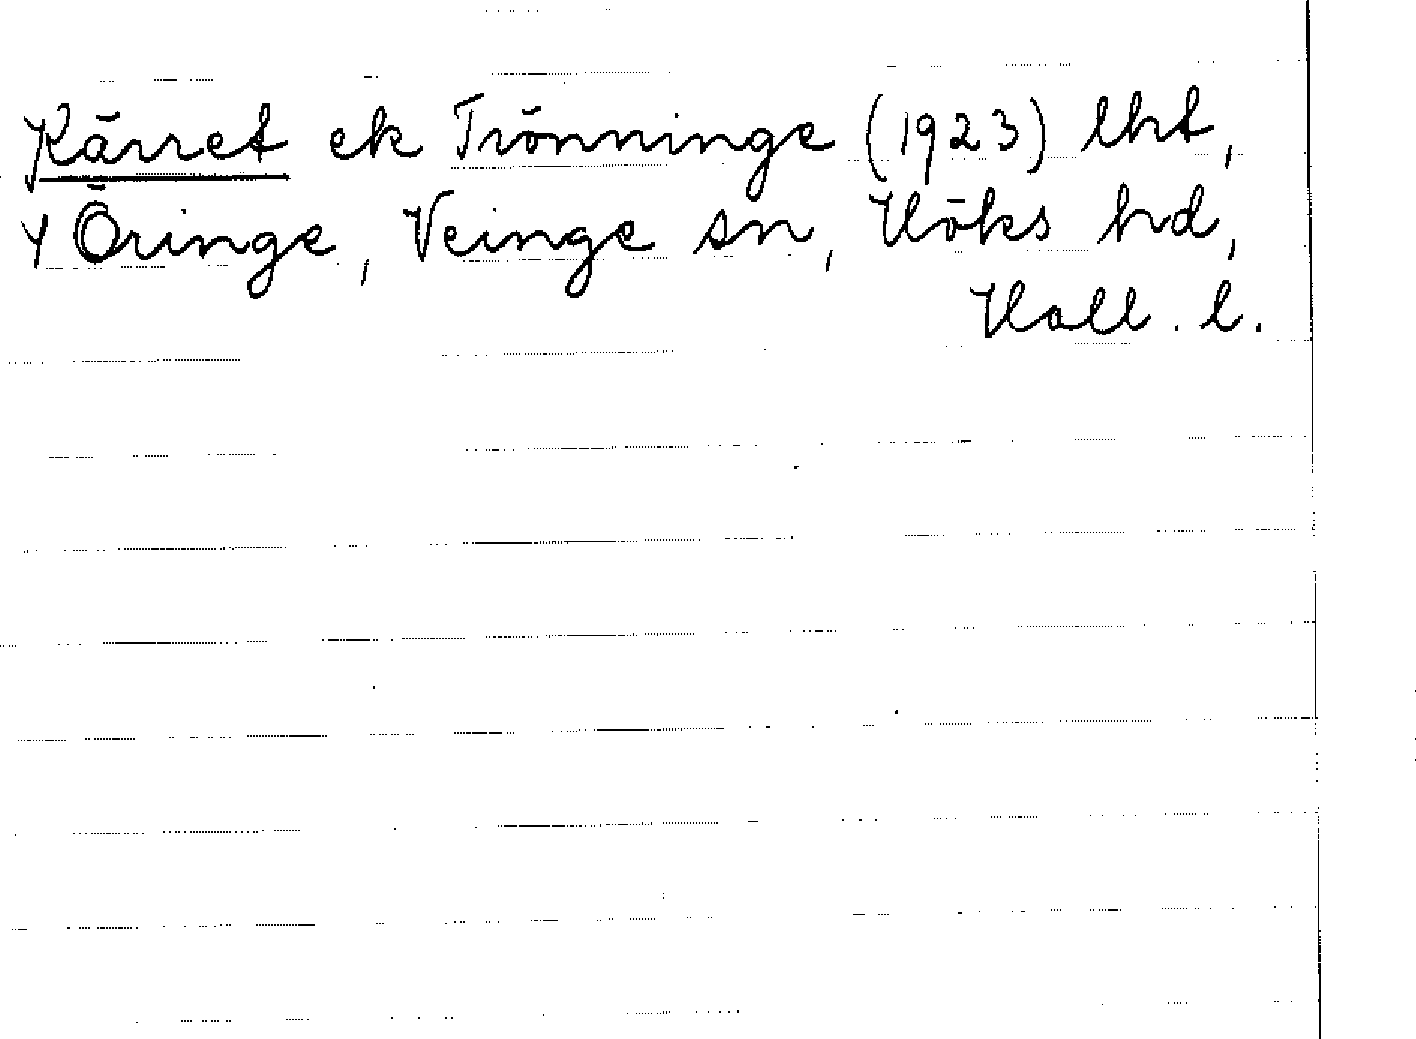 Kärret ek Trönninge (1923) lht,
Y Öringe, Veinge sn, Höks hd,
Hall. l.